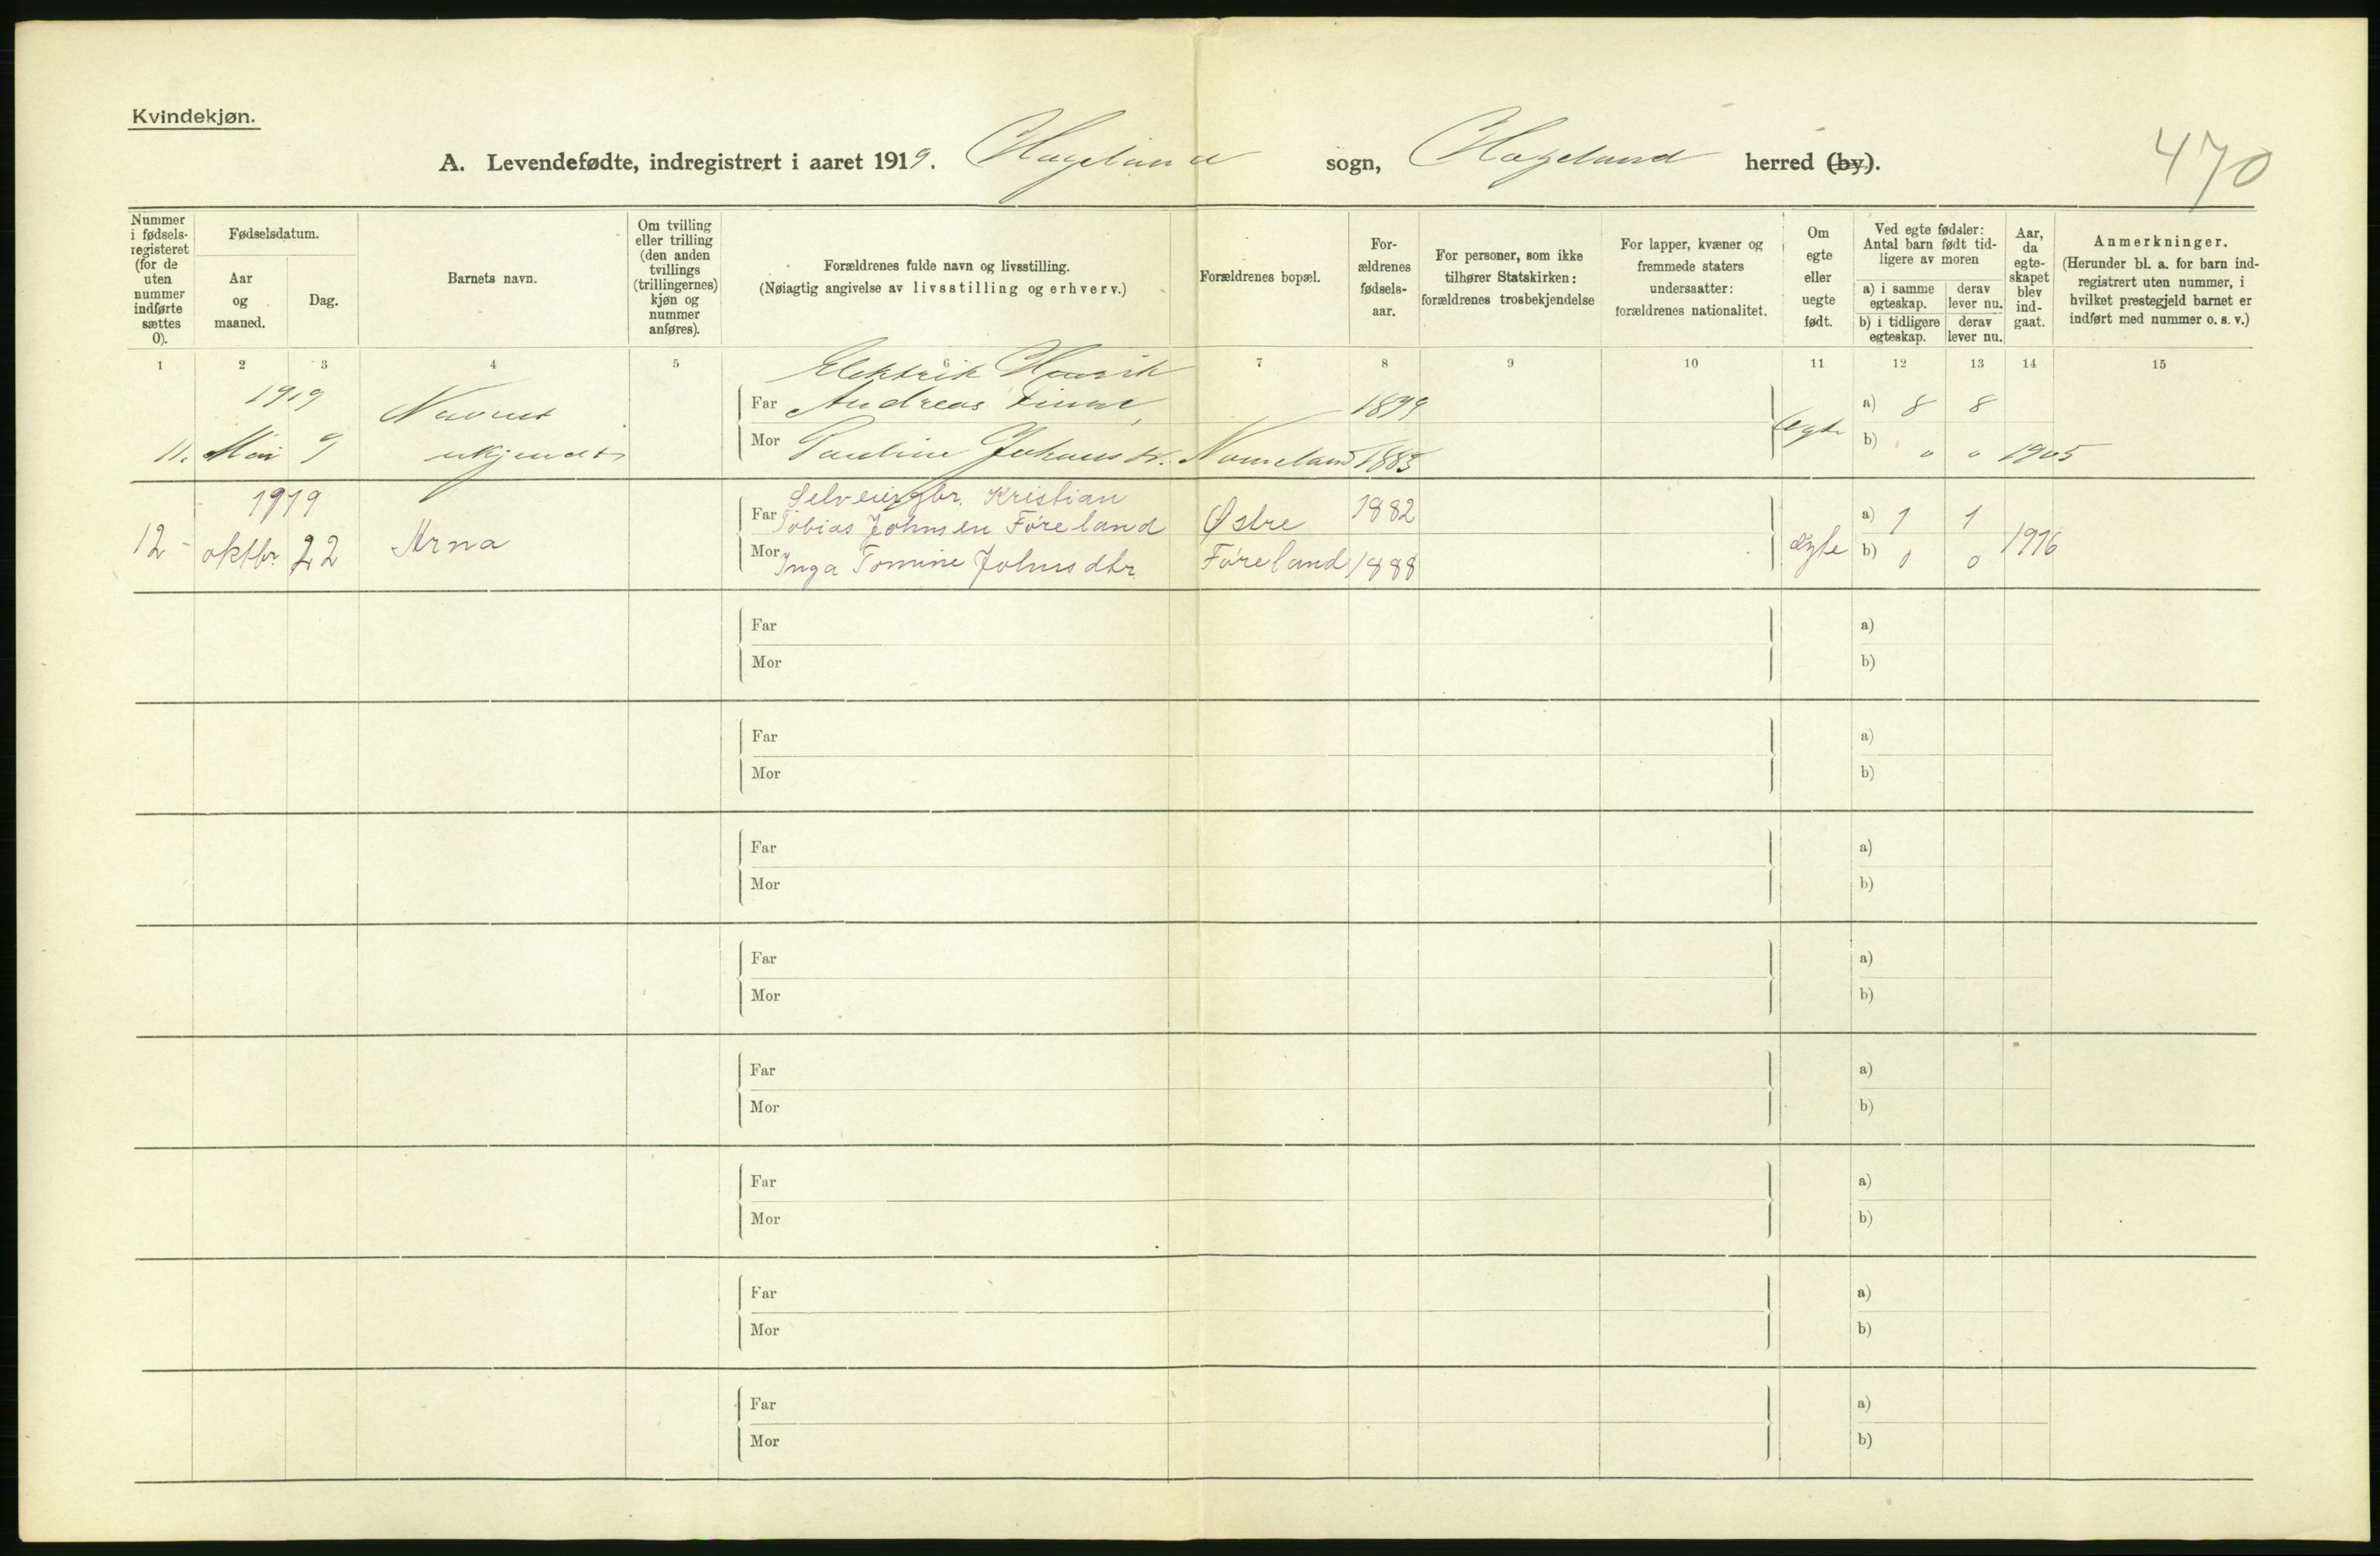 Kvindekjøn.
A. Levendefødte, indregistrert i aaret 1919. Hægeland sogn, Hægeland herred (by).
470
Nummer i fødsels-registeret (for de uten nummer indførte sættes 0).
Fødselsdatum.
Aar og maaned.
Dag.
Barnets navn.
Om tvilling eller trilling (den anden tvillings (trillingernes) kjøn og nummer anføres).
Forældrenes fulde navn og livsstilling.
(Nøiagtig angivelse av livsstilling og erhverv.)
Forældrenes bopæl.
For-ældrenes fødsels-aar.
For personer, som ikke tilhører Statskirken: forældrenes trosbekjendelse
For lapper, kvæner og fremmede staters undersaatter: forældrenes nationalitet.
Om egte eller uegte født.
Ved egte fødsler: Antal barn født tid-ligere av moren
a) i samme egteskap.
derav lever nu.
b) i tidligere egteskap.
derav lever nu.
Aar, da egte-skapet blev ind-gaat.
Anmerkninger.
(Herunder bl. a. for barn ind-registrert uten nummer, i hvilket prestegjeld barnet er indført med nummer o. s. v.)
1 2 3 4 5 6 7 8 9 10 11 12 13 14 15
1919 Navnet Far Andreas a) 8 8
11. Mai 9 ukjendt Mor Pauline Nomeland 1883 egte b) 0 0 1905
1919 Selveiergbr. Kristian
Far Tobias Johnsen Føreland Østre 1882 a) 1 1
12 oktbr. 22 Arna Mor Inga Tomine Johnsdtr Føreland 1888 egte b) 0 0 1916
Far a)
Mor b)
Far a)
Mor b)
Far a)
Mor b)
Far a)
Mor b)
Far a)
Mor b)
Far a)
Mor b)
Far a)
Mor b)
Far a)
Mor b)